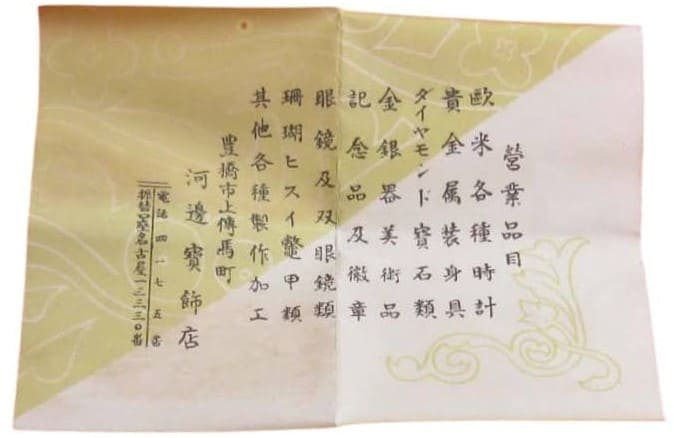 營業品目
歐米各種時計
貴金属装身具
ダイヤモンド寳石類
金銀器美術品
記念品及徽章
眼鏡及双眼鏡類
珊瑚ヒスイ鼈甲類
其他各種製作加工
豊橋市上傳馬町
河邊寳飾店
電話四一七五番
振替口座名古屋一三三三〇番